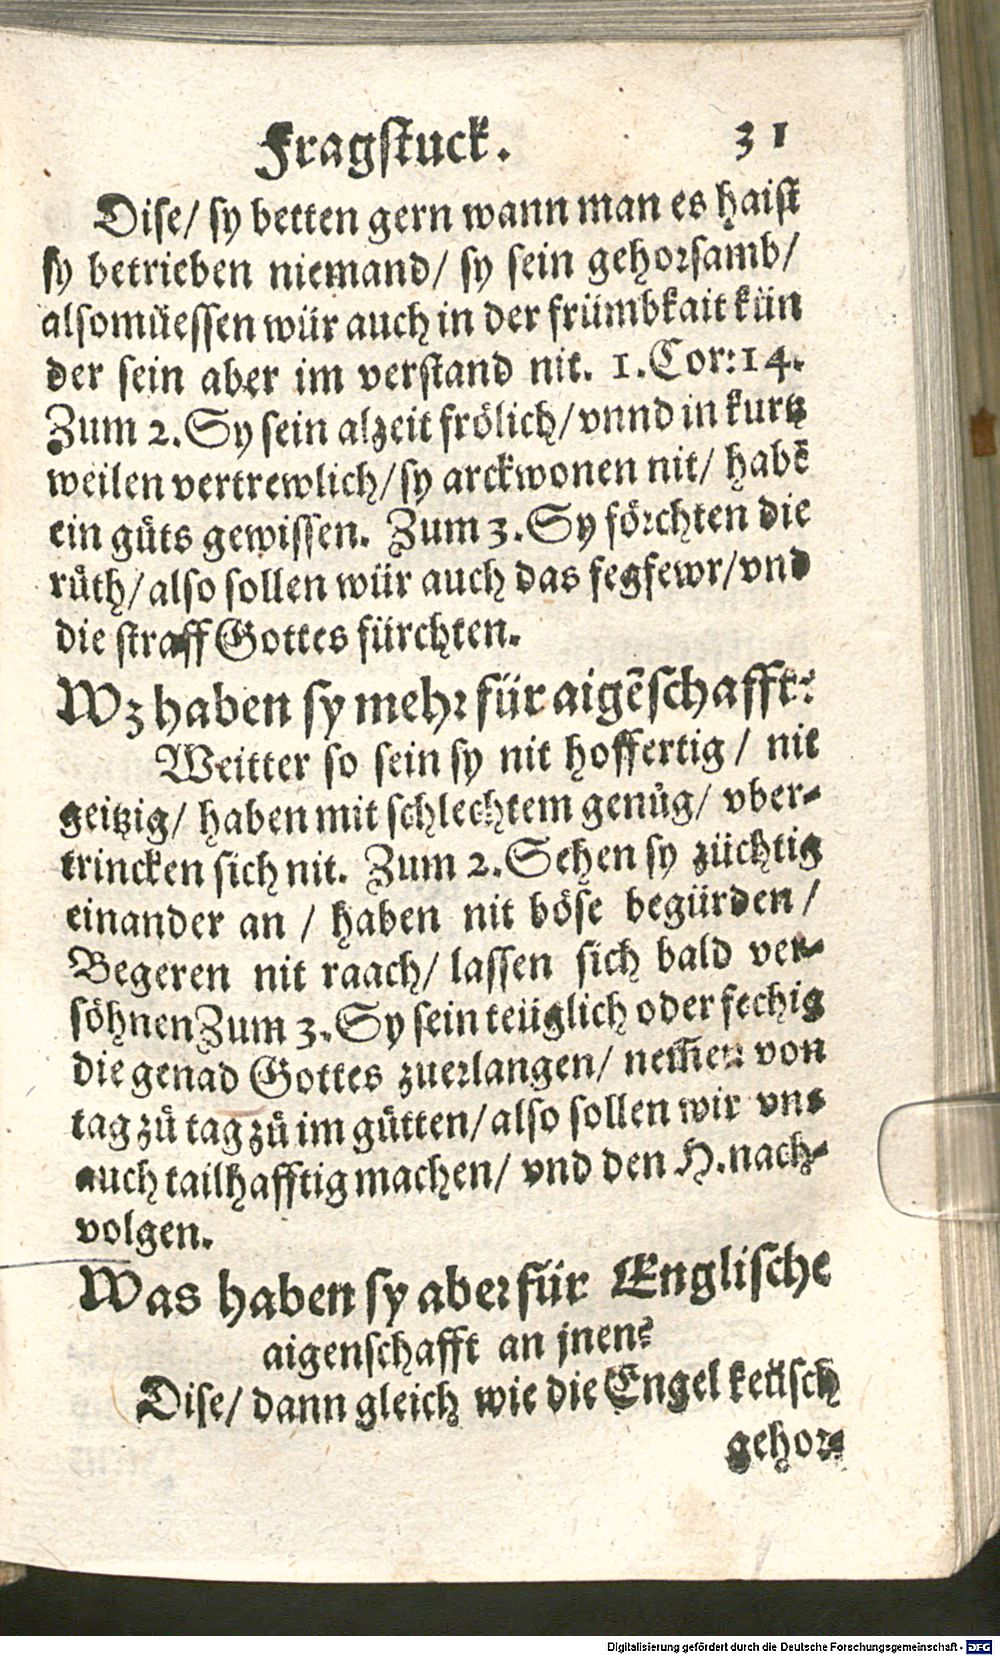 Fragstuck. 31
Dise/ sy betten gern wann man es haist
sy betrieben niemand/ sy sein gehorsamb/
alsomüessen wür auch in der frümbkait kün
der sein aber im verstand nit. 1. Cor: 14.
Zum 2. Sy sein alzeit frölich/ vnnd in kurtz
weilen vertrewlich/ sy arckwonen nit/ habē
ein gůts gewissen. Zum 3. Sy förchten die
růth/ also sollen wür auch das fegfewr/ vnd
die straff Gottes fürchten.
Wz haben sy mehr für aigēschafft?
Weitter so sein sy nit hoffertig/ nit
geitzig/ haben mit schlechtem genůg/ vber-
trincken sich nit. Zum 2. Sehen sy züchtig
einander an / haben nit böse begürden/
Begeren nit raach/ lassen sich bald ver-
söhnen Zum 3. Sy sein teüglich oder fechig
die genad Gottes zuerlangen/ nem̄en von
tag zů tag zů im gůtten/ also sollen wir vns
auch tailhafftig machen/ vnd den H. nach-
volgen.
Was haben sy aber für Englische
aigenschafft an jnen?
Dise/ dann gleich wie die Engel keüsch
gehor-
Digitalisierung gefördert durch die Deutsche Forschungsgemeinschaft - DFG